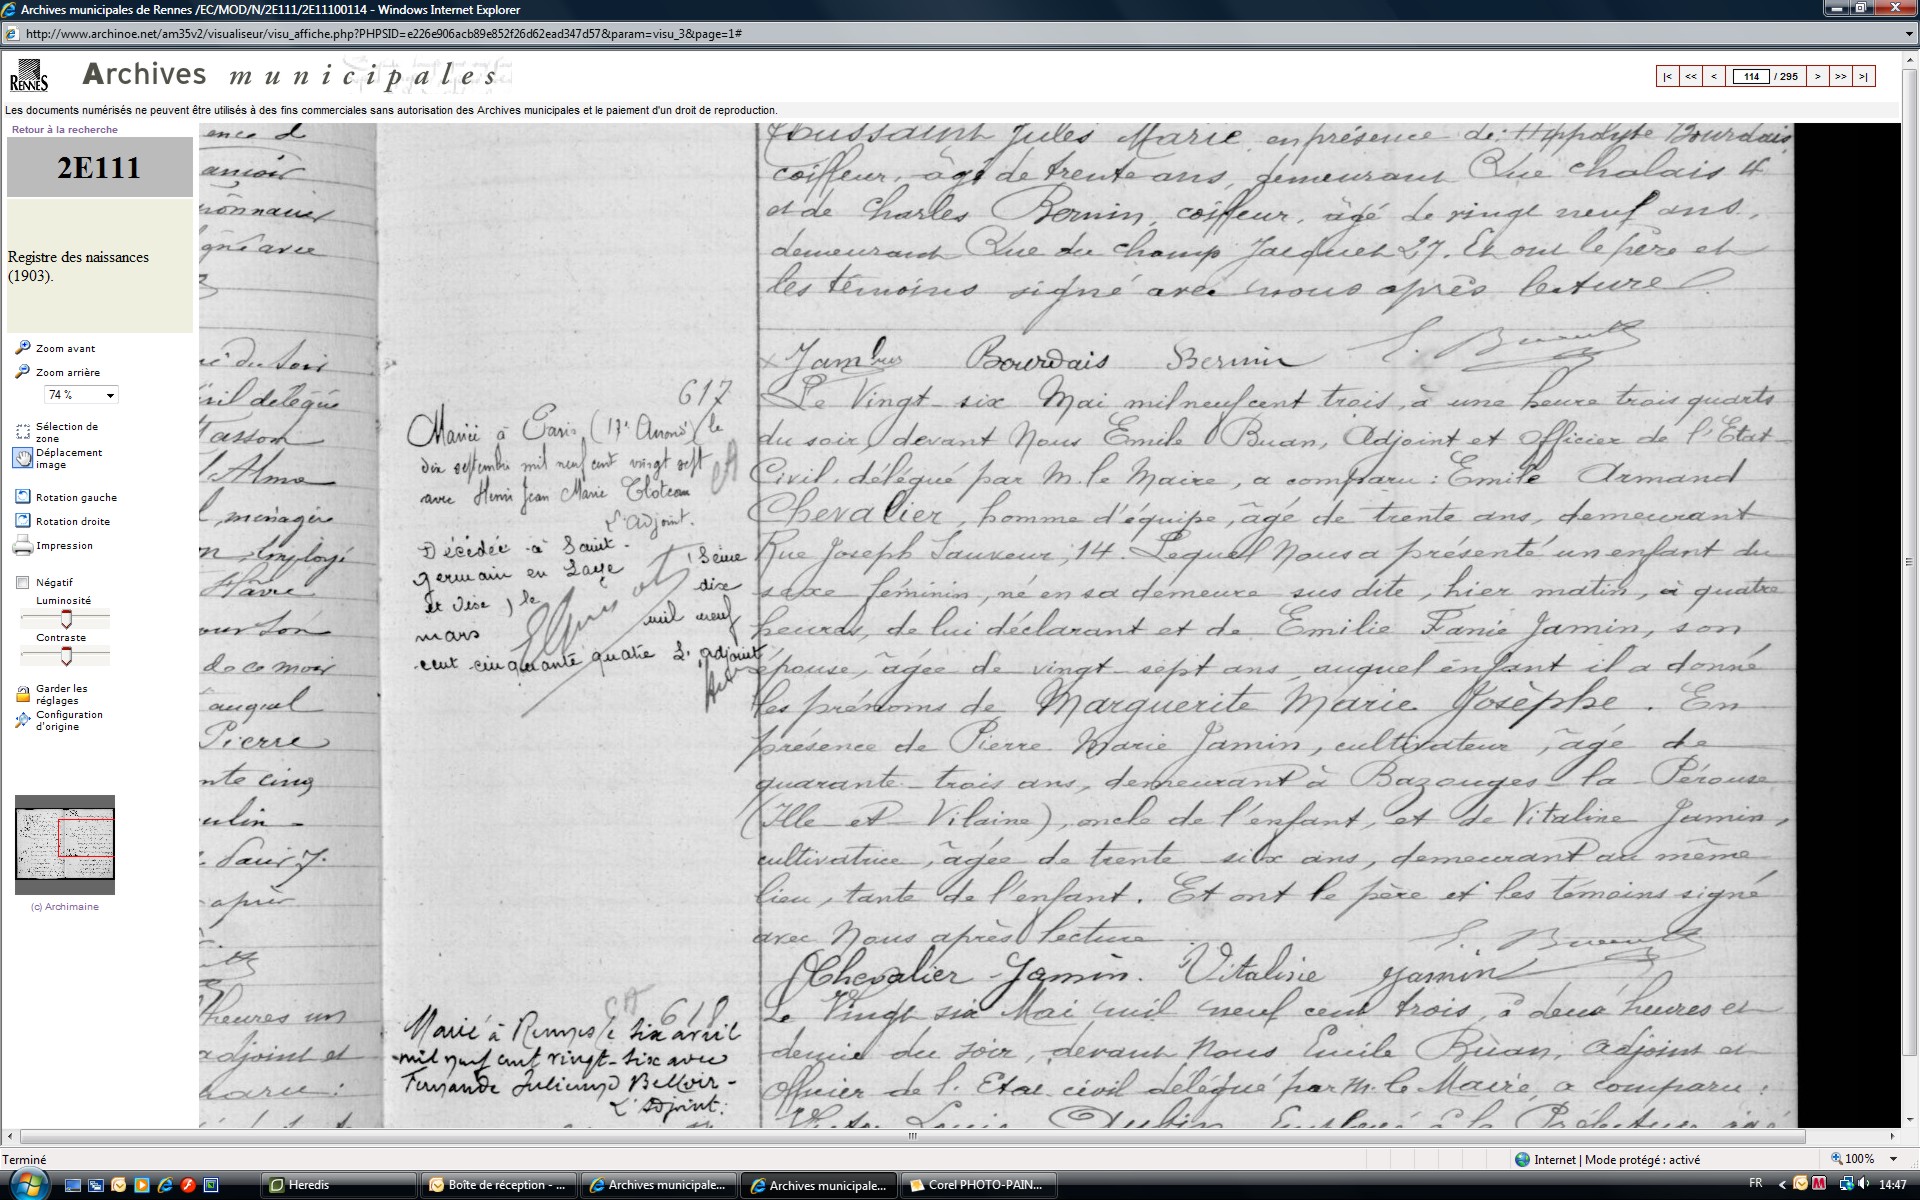 Archives municipales de Rennes /EC/MOD/N/2E111/2E11100114 - Windows Internet Explorer
http://www.archinoe.net/am35v2/visualiseur/visu_affiche.php?PHPSID=e226e906acb89e852f26d62ead347d57&param=visu_3&page=1#
RENNES
Archives municipales
|< << < 114 / 295 > >> >|
Les documents numérisés ne peuvent être utilisés à des fins commerciales sans autorisation des Archives municipales et le paiement d'un droit de reproduction.
Retour à la recherche
2E111
Registre des naissances
(1903).
Zoom avant
Zoom arrière
74 %
Sélection de
zone
Déplacement
image
Rotation gauche
Rotation droite
Impression
Négatif
Luminosité
Contraste
Garder les
réglages
Configuration
d'origine
(c) Archimaine
du Soir
délégué
l'Alma
ménagère
employé
Havre
de ce mois
auquel
Pierre
cinq
après
heures un
adjoint et
Toussaint Jules Marie en présence de Hippolyte Bourdais
coiffeur, âgé de trente ans, demeurant Rue Chalais 4
et de Charles Bernin, coiffeur, âgé de vingt neuf ans,
demeurant Rue du champ Jacquet 27. Et ont le père et
les témoins signé avec nous après lecture
Bourdais Bernin
617
Mariée à Paris (17e Arrondt) le
dix septembre mil neuf cent vingt sept
avec Henri Jean Marie
L'adjoint.
Décédée à Saint-
Germain en Laye (Seine
et Oise) le dix
mars mil neuf
cent cinquante quatre L'adjoint
Le Vingt-six Mai mil neuf cent trois, à une heure trois quarts
du soir, devant Nous Emile Buan, Adjoint et Officier de l'Etat-
Civil, délégué par M. le Maire, a comparu : Emile Armand
Chevalier, homme d'équipe, âgé de trente ans, demeurant
Rue Joseph Sauveur, 14. Lequel Nous a présenté un enfant du
sexe féminin, né en sa demeure sus dite, hier matin, à quatre
heures, de lui déclarant et de Emilie Fanie Jamin, son
épouse, âgée de vingt-sept ans, auquel enfant il a donné
les prénoms de Marguerite Marie Josèphe. En
présence de Pierre Marie Jamin, cultivateur, âgé de
quarante-trois ans, demeurant à Bazouges-la-Pérouse
(Ille-et-Vilaine), oncle de l'enfant, et de Vitaline Jamin,
cultivatrice, âgée de trente-six ans, demeurant au même
lieu, tante de l'enfant. Et ont le père et les témoins signé
avec Nous après lecture
Chevalier Jamin. Vitaline Jamin
618
Marié à Rennes le six avril
mil neuf cent vingt-six avec
Fernande
L'adjoint:
Le Vingt six Mai mil neuf cent trois, à deux heures et
demie du soir, devant Nous Emile Buan, adjoint et
Officier de l'Etat civil délégué par M. le Maire, a comparu :
Louis Aubin, Employé à la Préfecture, âgé
Terminé
Internet | Mode protégé : activé
100%
Heredis
Boîte de réception - ...
Archives municipale...
Archives municipale...
Corel PHOTO-PAIN...
FR
14:47